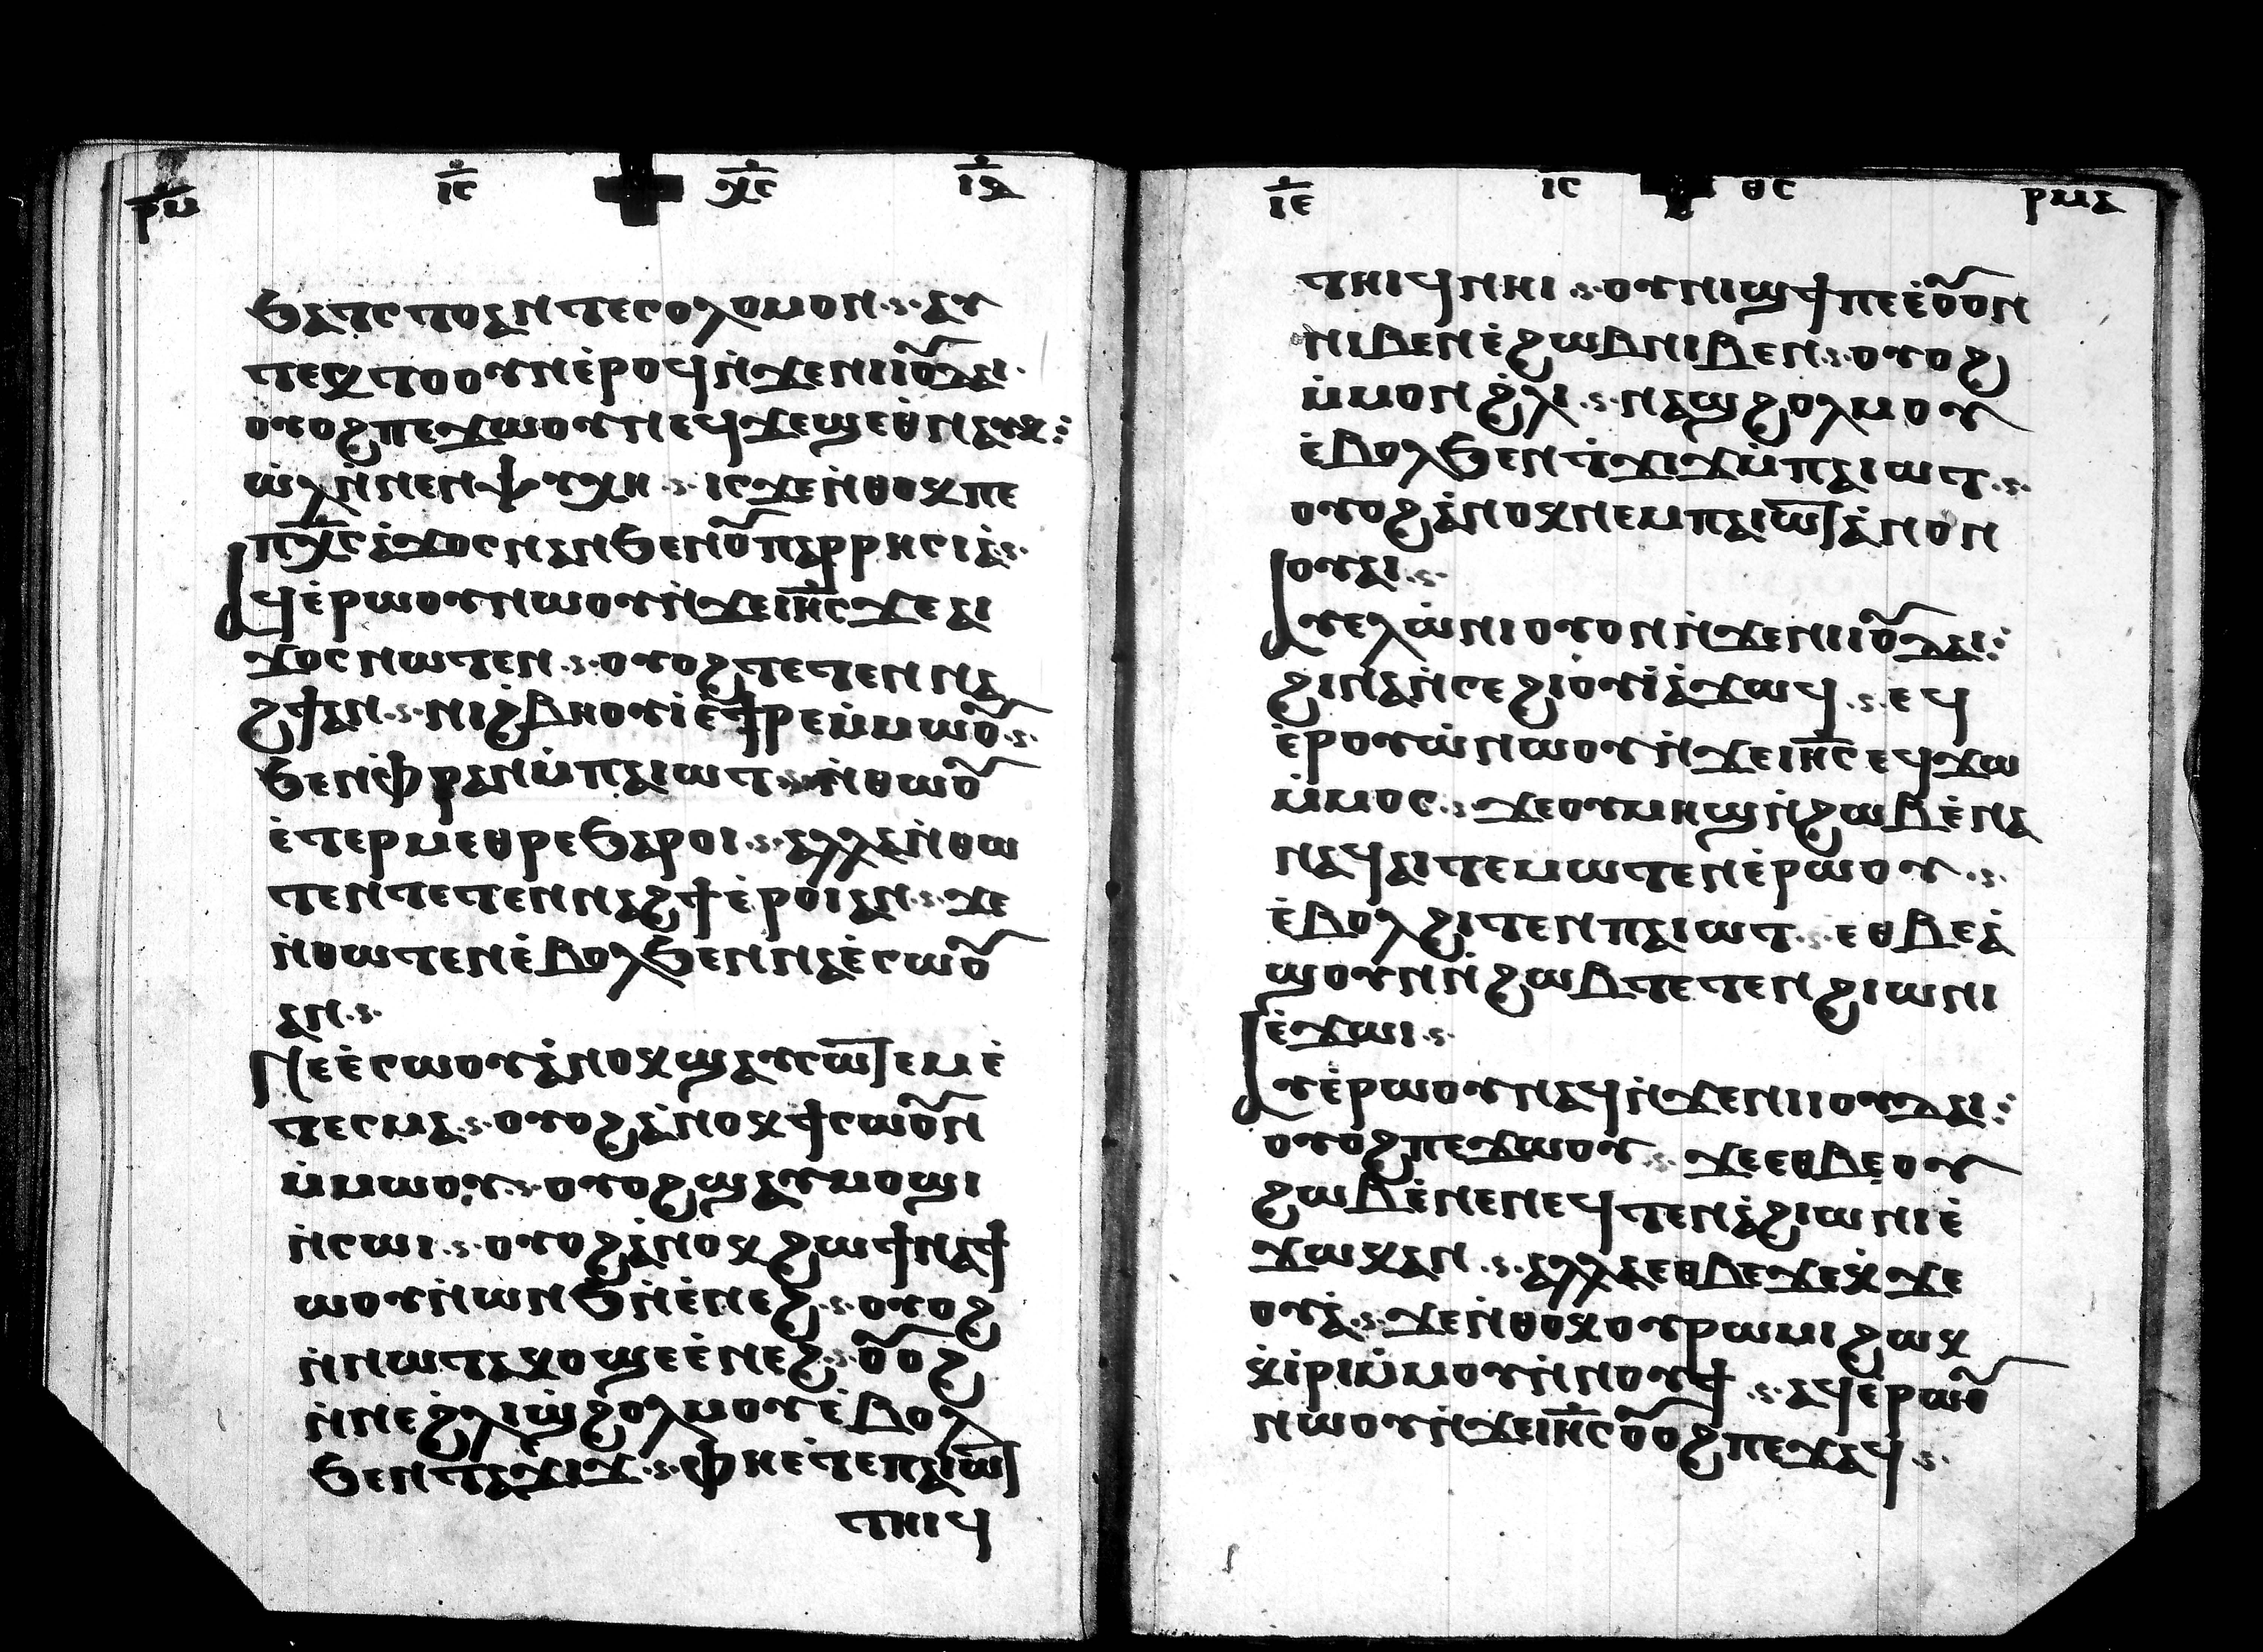 ⲣⲙ ⲓⲥ ⲭⲥ ⲓⲇ
ϧⲁⲧⲥⲧⲟⲁⲛⲧⲉⲥⲟⲗⲟⲙⲟⲛ ⲁⲩ
ⲧⲉⲕⲧⲟⲟⲩⲛⲉ̀ⲣⲟϥⲛ̀ϫⲉⲛⲓⲓⲟ̅ⲇⲁⲓ
ⲟⲩⲟϩⲡⲉϫⲱⲟⲩⲛⲉϥϫⲉϣⲉⲑⲛⲁⲩⲕ
ⲱ̀ⲗⲛ̀ⲛⲉⲛⲯⲩⲭⲏ ⲓⲥϫⲉⲛ̀ⲑⲟⲕⲡⲉ
ⲡⲭ̅ⲥⲁ̀ϫⲟⲥⲛⲁⲛϧⲉⲛⲟ̅ⲡⲁⲣⲣⲏⲥⲓⲁ̀
ⲁϥⲉ̀ⲣⲱⲟⲩⲛⲱⲟⲩⲛ̀ϫⲉⲓⲏ̅ⲥϫⲉⲁⲓ
ϫⲟⲥⲛⲱⲧⲉⲛ ⲟⲩⲟϩⲧⲉⲧⲉⲛⲛⲁ
ϩϯⲁⲛ ⲛⲓϩ̀ⲃⲏⲟⲩⲓ̀ⲉ̀ϯⲣⲉⲙ̀ⲙⲱⲟ̅
ϧⲉⲛⲫ̀ⲣⲁⲛⲙ̀ⲡⲁⲓⲱⲧ ⲛ̀ⲑⲱⲟ̅
ⲉ̀ⲧⲉⲣⲙⲉⲑⲣⲉϧⲁⲣⲟⲓ ⲁⲗⲗⲁⲛ̀ⲑⲱ
ⲧⲉⲛⲧⲉⲧⲉⲛⲛⲁϩϯⲉ̀ⲣⲟⲓⲁⲛ ϫⲉ
ⲛ̀ⲑⲱⲧⲉⲛⲉ̀ⲃⲟⲗϧⲉⲛⲛⲁⲉ̀ⲥⲱⲟ̅
ⲁⲛ
ⲛⲉⲉ̀ⲥⲱⲟⲩⲁ̀ⲛⲟⲕϣⲁⲩⲥⲱ̅ⲧⲉⲙⲉ̀
ⲧⲉⲥⲙⲁ ⲟⲩⲟϩⲁ̀ⲛⲟⲕϯⲥⲱⲟ̅ⲛ
ⲙ̀ⲙⲱⲟⲩ ⲟⲩⲟϩϣⲁⲩⲙⲟϣⲓ
ⲛ̀ⲥⲱⲓ ⲟⲩⲟϩⲁ̀ⲛⲟⲕϩⲱϯⲛⲁϯ
ⲱⲟⲩⲛ̀ⲱⲛϧⲛ̀ⲉ̀ⲛⲉϩ ⲟⲩⲟϩ
ⲛ̀ⲛⲱⲧⲁⲕⲟϣⲉⲉ̀ⲛⲉϩ ⲟ̅ⲟϩ
ⲛ̀ⲛⲉϩ̀ⲗⲓϣ̀ϩⲟⲗⲙⲟⲩⲉ̀ⲃⲟⲗ
ϧⲉⲛⲧⲁϫⲓϫ ⲫⲏⲉ̀ⲧⲉⲡⲁⲓⲱ̅ⲧ
ⲧⲏⲓϥ
ⲓⲉ ⲓⲥ ⲑⲥ ⲣⲙⲁ
ⲧⲏⲓϥⲛⲏⲓ ⲟⲩⲛⲓϣϯⲡⲉⲉ̀ⲟ̅ⲟⲛ
ⲛⲓⲃⲉⲛⲉ̀ϩⲱⲃⲛⲓⲃⲉⲛ ⲟⲩⲟϩ
ⲙ̀ⲙⲟⲛϩ̀ⲗⲓ ⲛⲁϣϩⲟⲗⲙⲟⲩ
ⲉ̀ⲃⲟⲗϧⲉⲛⲧ̀ϫⲓϫⲙ̀ⲡⲁⲓⲱⲧ
ⲟⲩⲟϩⲁ̀ⲛⲟⲕⲛⲉⲙⲡⲁⲓⲱ̅ⲧⲁ̀ⲛⲟⲛ
ⲟⲩⲁⲓ
ⲁⲩⲉⲗⲱ̀ⲛⲓⲟⲩⲟⲛⲛ̀ϫⲉⲛⲓⲓⲟ̅ⲇⲁⲓ
ϩⲓⲛⲁⲛ̀ⲥⲉϩⲓⲟⲩⲓ̀ⲁ̀ϫⲱϥ ⲉϥ
ⲉ̀ⲣⲟⲩⲱ̀ⲛⲱⲟⲩⲛ̀ϫⲉⲓⲏ̅ⲥⲉϥϫⲱ
ⲙ̀ⲙⲟⲥ ϫⲉⲟⲩⲙⲏϣⲛ̀ϩⲱⲃⲉ̀ⲛⲁ
ⲛⲁϥⲁⲓⲧⲉⲙⲱⲧⲉⲛⲉ̀ⲣⲱⲟⲩ
ⲉ̀ⲃⲟⲗϩⲓⲧⲉⲛⲡⲁⲓⲱⲧ ⲉⲑⲃⲉⲁ̀
ϣⲟⲩⲛⲛ̀ϩⲱⲃⲧⲉⲧⲉⲛϩⲓⲱⲛⲓ
ⲉ̀ϫⲱⲓ
ⲁⲩⲉ̀ⲣⲱⲟⲩⲛⲁϥⲛ̀ϫⲉⲛⲓⲓⲟⲩⲇⲁⲓ
ⲟⲩⲟϩⲡⲉϫⲱⲟⲩ ϫⲉⲉⲑⲃⲉⲟⲩ
ϩⲱⲃⲉ̀ⲛⲉⲛⲉϥⲧⲉⲛⲁ̀ϩⲓⲱⲛⲓⲉ̀
ϫⲱⲕⲁⲛ ⲁⲗⲗⲁⲉⲑⲃⲉϫⲉⲕ̀ϫⲉ
ⲟⲩⲁ̀ ϫⲉⲛ̀ⲑⲟⲕⲟⲩⲣⲱⲙⲓϩⲱⲕ
ⲕ̀ⲓⲣⲓⲙ̀ⲙⲟⲩⲛ̀ⲛⲟⲩϯ ⲁϥⲉ̀ⲣⲱⲟ̅
ⲛⲱⲟⲩⲛ̀ϫⲉⲓⲏ̅ⲥⲟ̅ⲟϩⲡⲉϫⲁϥ